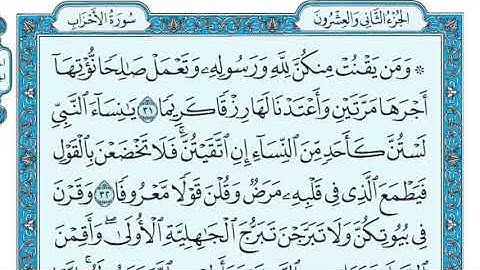 الجُزْءُ الثَّانِي وَالْعِشْرُونَ
سُورَةُ الأَحْزَابِ
۞ وَمَن يَقْنُتْ مِنكُنَّ لِلَّهِ وَرَسُولِهِۦ وَتَعْمَلْ صَٰلِحًا نُّؤْتِهَآ
أَجْرَهَا مَرَّتَيْنِ وَأَعْتَدْنَا لَهَا رِزْقًا كَرِيمًا ٣١ يَٰنِسَآءَ ٱلنَّبِيِّ
لَسْتُنَّ كَأَحَدٍ مِّنَ ٱلنِّسَآءِ إِنِ ٱتَّقَيْتُنَّ ۚ فَلَا تَخْضَعْنَ بِٱلْقَوْلِ
فَيَطْمَعَ ٱلَّذِى فِى قَلْبِهِۦ مَرَضٌ وَقُلْنَ قَوْلًا مَّعْرُوفًا ٣٢ وَقَرْنَ
فِى بُيُوتِكُنَّ وَلَا تَبَرَّجْنَ تَبَرُّجَ ٱلْجَٰهِلِيَّةِ ٱلْأُولَىٰ ۖ وَأَقِمْنَ